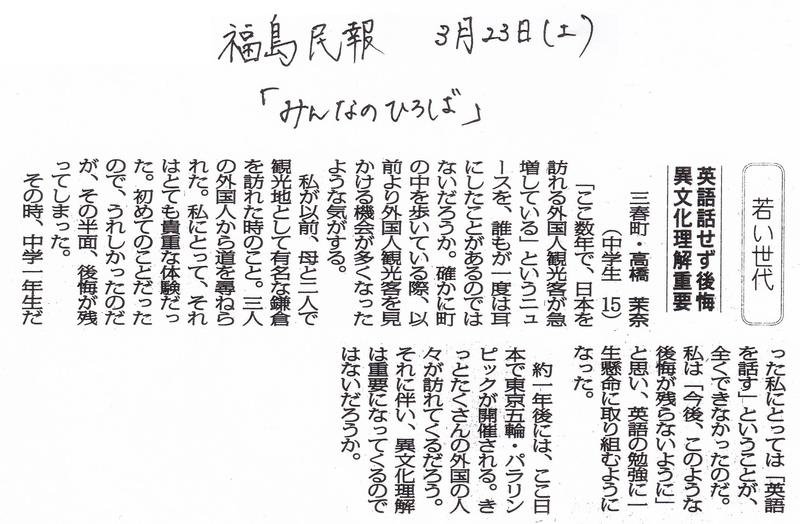 福島民報　3月23日(土)
「みんなのひろば」
若い世代
英語話せず後悔
異文化理解重要
三春町・高橋　茉奈
（中学生　15）
「ここ数年で、日本を
訪れる外国人観光客が急
増している」というニュ
ースを、誰もが一度は耳
にしたことがあるのでは
ないだろうか。確かに町
の中を歩いている際、以
前より外国人観光客を見
かける機会が多くなった
ような気がする。
私が以前、母と二人で
観光地として有名な鎌倉
を訪れた時のこと。三人
の外国人から道を尋ねら
れた。私にとって、それ
はとても貴重な体験だっ
た。初めてのことだった
ので、うれしかったのだ
が、その半面、後悔が残
ってしまった。
その時、中学一年生だ
った私にとっては「英語
を話す」ということが、
全くできなかったのだ。
私は「今後、このような
後悔が残らないように」
と思い、英語の勉強に一
生懸命に取り組むように
なった。
約一年後には、ここ日
本で東京五輪・パラリン
ピックが開催される。き
っとたくさんの外国の人
々が訪れてくるだろう。
それに伴い、異文化理解
は重要になってくるので
はないだろうか。